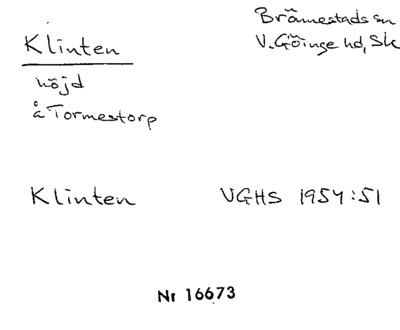 Klinten
Brännestads sn
V. Göinge hd, Sk
höjd
å Tormestorp
Klinten VGHS 1954:51
Nr 16673